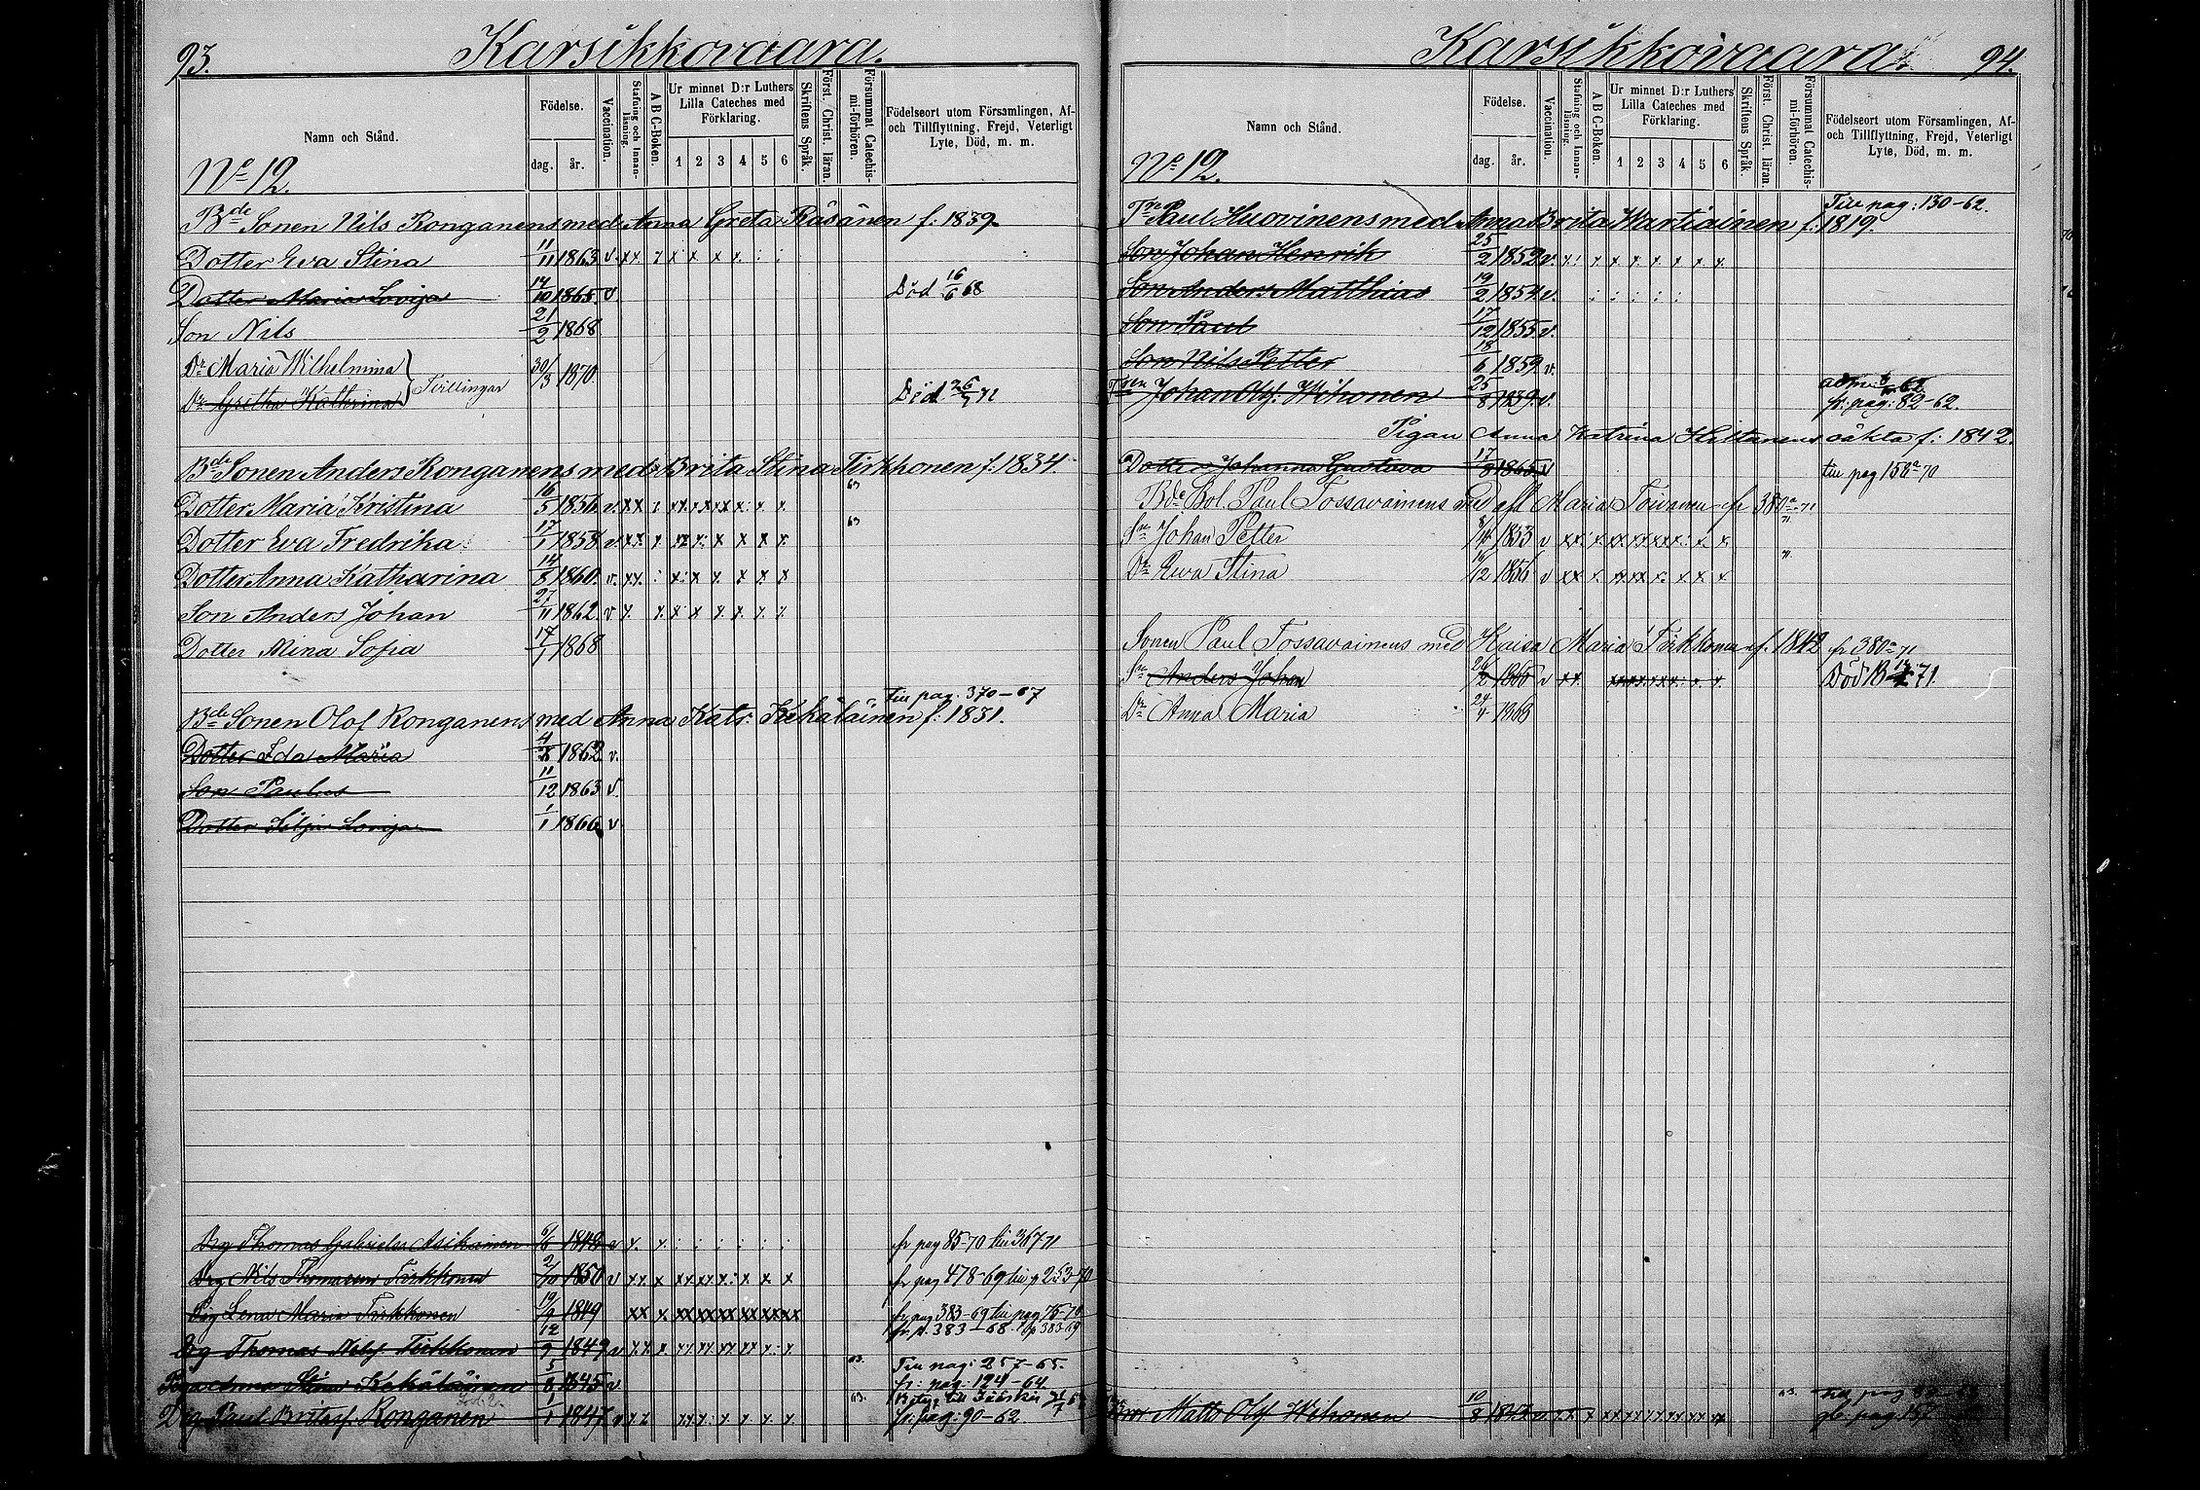 93.
Karsikkovaara.
Namn och Stånd.
Födelse.
dag.
år.
Vaccination.
Stafning och Innanläsning.
A B C-Boken.
Ur minnet D:r Luthers Lilla Cateches med Förklaring.
1 2 3 4 5 6
Skriftens Språk.
Först. Christ. läran.
Försummat Catechismi-förhören.
Födelseort utom Församlingen, Af- och Tillflyttning, Frejd, Veterligt Lyte, Död, m. m.
No 12.
Bde Sonen Nils Ronganens med Anna Greta Räsänen f. 1839.
Dotter Eva Stina 11/11 1863 v.
Dotter Maria Lovisa 14/10 1865 v. Död 16/6 68
Son Nils 21/2 1868
Dr Maria Wilhelmina 30/3 1870. Tvillingar
Dr Gretha Kathrina Död 26/ 71
Bde Sonen Anders Ronganens med Brita Stina Tirkkonen f. 1834.
Dotter Maria Kristina 16/5 1856 v. 67
Dotter Eva Fredrika 17/1 1858 v. 63
Dotter Anna Katharina 14/8 1860. v.
Son Anders Johan 27/11 1862 v
Dotter Mina Sofia 17/1 1868
Till pag. 370-67
Bde Sonen Olof Ronganens med Anna Kats: Kekäläinen f. 1831.
Dotter Ida Maria 4/8 1862 v.
Son Paulus 11/12 1863 v.
Dotter Silja Lovisa 1/1 1866 v
Drg Thomas Gabrielss Asikainen 6/6 1848 v fr pag 85-70 till 367 71
Drg Nils Thomasson Tirkkonen 2/10 1850 v fr pag 478-69 till p 253-70
Pig Lena Maria Tirkkonen 19/9 1849 fr pag 383-69 till pag 75-70
fr p. 383-68. t p 383-69
Drg Thomas Nilsf Tirkkonen 12/9 1847 v
Till pag: 257-65.
Pigan Anna Stina Kekäläinen 5/8 1845 v fr: pag: 124-64.
Drg Paul Britasf. Ronganen 1/1 1847 v 63. fr pag: 90-62.
94.
Karsikkovaara.
Namn och Stånd.
Födelse.
dag.
år.
Vaccination.
Stafning och Innanläsning.
A B C-Boken.
Ur minnet D:r Luthers Lilla Cateches med Förklaring.
1 2 3 4 5 6
Skriftens Språk.
Först. Christ. läran.
Försummat Catechismi-förhören.
Födelseort utom Församlingen, Af- och Tillflyttning, Frejd, Veterligt Lyte, Död, m. m.
No 12.
Till pag: 130-62.
Paul Huovinens med Anna Brita Wartiainen f: 1819.
Son Johan Henrik 25/2 1852 v.
Son Anders Matthias 19/2 1854 v.
Son Paul 17/12 1855 v.
Son Nils Petter 18/6 1859 v.
Johan Olsf. Wihonen 25/8 1839 v. fr: pag: 82-62.
Pigan Anna Katrina Hiltunens oäkta f: 1842.
Dotter Johanna Gustava 17/8 1865 v till pag 158a 70
Bde Bol. Paul Tossavainens med afl Maria Toivanen fr 380a 71
Sn Johan Petter 1853 v
Dr Ewa Stina 12 1856 v
Sonen Paul Tossavainens med Kaisa Maria Tirkkonen f. 1842 fr 380a 71
Sn Anders Johan 1866 v Död 71.
Dr Anna Maria 24/4 1868
Matts Olsf Wihonen 10/8 v 63.